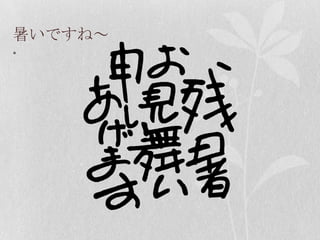 暑いですね~
残暑
お見舞い
申しあげます